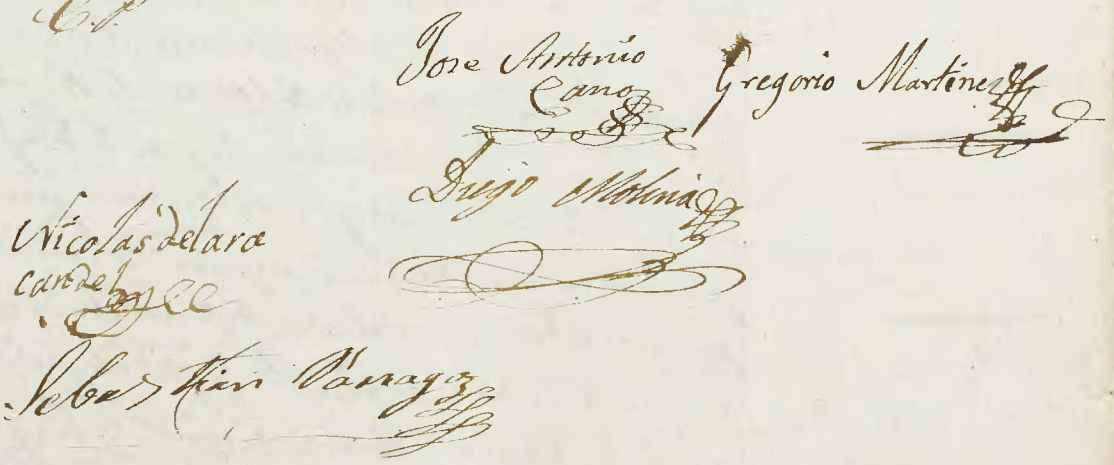 Jose Antonio
Cano
Gregorio Martinez
Diego Molina
Nicolas de lara
candel
Sebastian Párraga